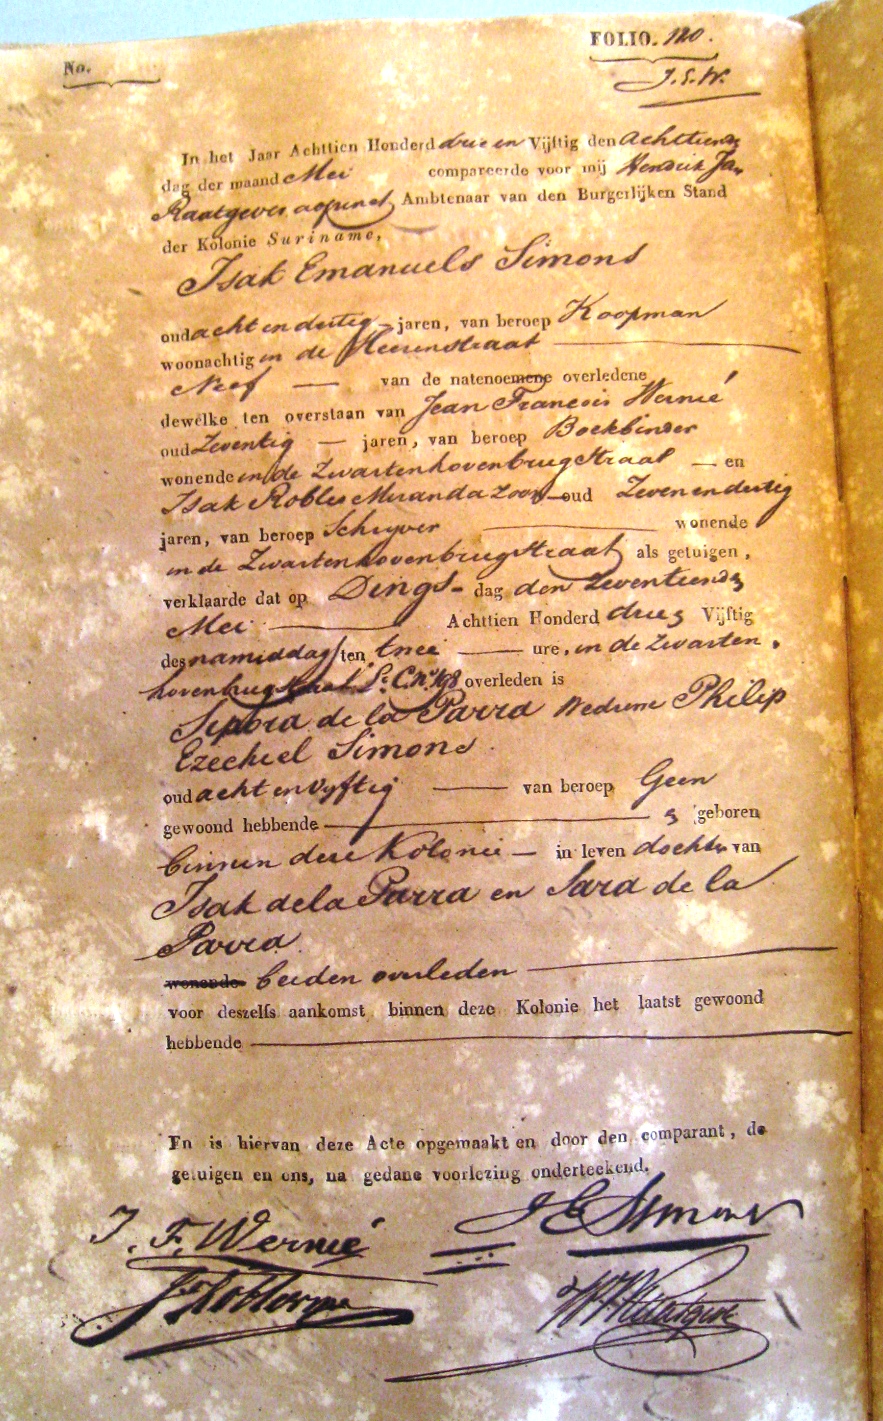 No.
FOLIO. 120.
J.S.W.
In het Jaar Achttien Honderd drie en Vijftig den achttiende
dag der maand Mei compareerde voor mij Hendrik Jan
Raatgever adjunct Ambtenaar van den Burgerlijken Stand
der Kolonie Suriname,
Isak Emanuels Simons
oud acht en dertig jaren, van beroep Koopman
woonachtig in de Heerenstraat
Neef van de natenoemene overledene
dewelke ten overstaan van Jean Francois Wernié
oud Zeventig jaren, van beroep Boekbinder
wonende in de Zwartenhovenbrugstraat en
Isak Robles Miranda zoon oud Zeven en dertig
jaren, van beroep Schryver wonende
in de Zwartenhovenbrugstraat als getuigen,
verklaarde dat op Dings- dag den Zeventiende
Mei Achttien Honderd drie Vijftig
des namiddag ten twee ure, in de Zwarten
hovenbrugstraat overleden is
Sipora de la Parra Weduwe Philip
Ezechiel Simons
oud acht en vyftig van beroep Geen
gewoond hebbende geboren
binnen deze Kolonie in leven dochter van
Isak de la Parra en Sara de la
Parra
wonende beiden overleden
voor deszelfs aankomst binnen deze Kolonie het laatst gewoond
hebbende
En is hiervan deze Acte opgemaakt en door den comparant, de
getuigen en ons, na gedane voorlezing onderteekend.
J. F. Wernié
J E Simons